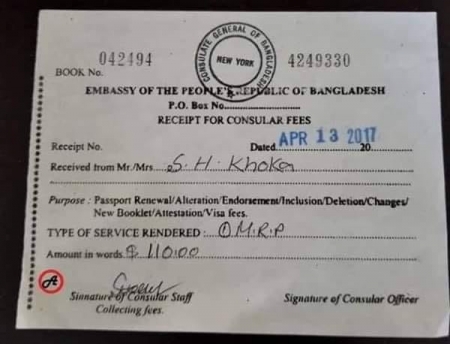 042494 4249330
CONSULATE GENERAL OF BANGLADESH
NEW YORK
BOOK No.
EMBASSY OF THE PEOPLE'S REPUBLIC OF BANGLADESH
P.O. Box No...................
RECEIPT FOR CONSULAR FEES
Receipt No. Dated APR 13 2017 20......
Received from Mr/Mrs S. H. Khoka
Purpose : Passport Renewal/Alteration/Endorsement/Inclusion/Deletion/Changes/
New Booklet/Attestation/Visa fees.
TYPE OF SERVICE RENDERED : O.M.R.P
Amount in words $ 110.00
A
Signature of Consular Staff Signature of Consular Officer
Collecting fees.